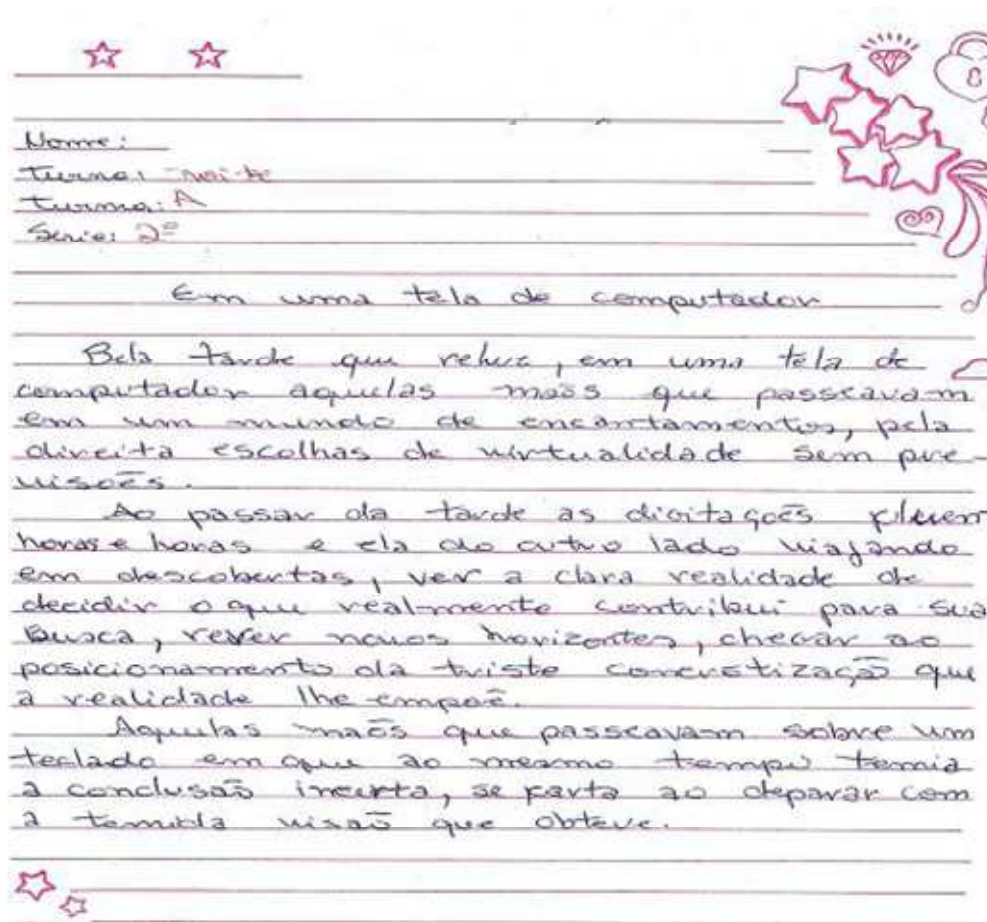 Nome:
Turno: noite
Turma: A
Série: 2º
Em uma tela de computador
Bela tarde que reluz, em uma tela de
computador aquelas maõs que passeavam
em um mundo de encantamentos, pela
direita escolhas de virtualidade sem pre-
visoẽs.
Ao passar da tarde as digitaçoẽs fluem
horas e horas e ela do outro lado viajando
em descobertas, ver a clara realidade de
decidir o que realmente contribui para sua
Busca, rever novos horizontes, chegar ao
posicionamento da triste concretizaçaõ que
a realidade lhe empoẽ.
Aquelas maõs que passeavam sobre um
teclado em que ao mesmo tempo temia
a conclusaõ incerta, se farta ao deparar com
a temida visaõ que obteve.